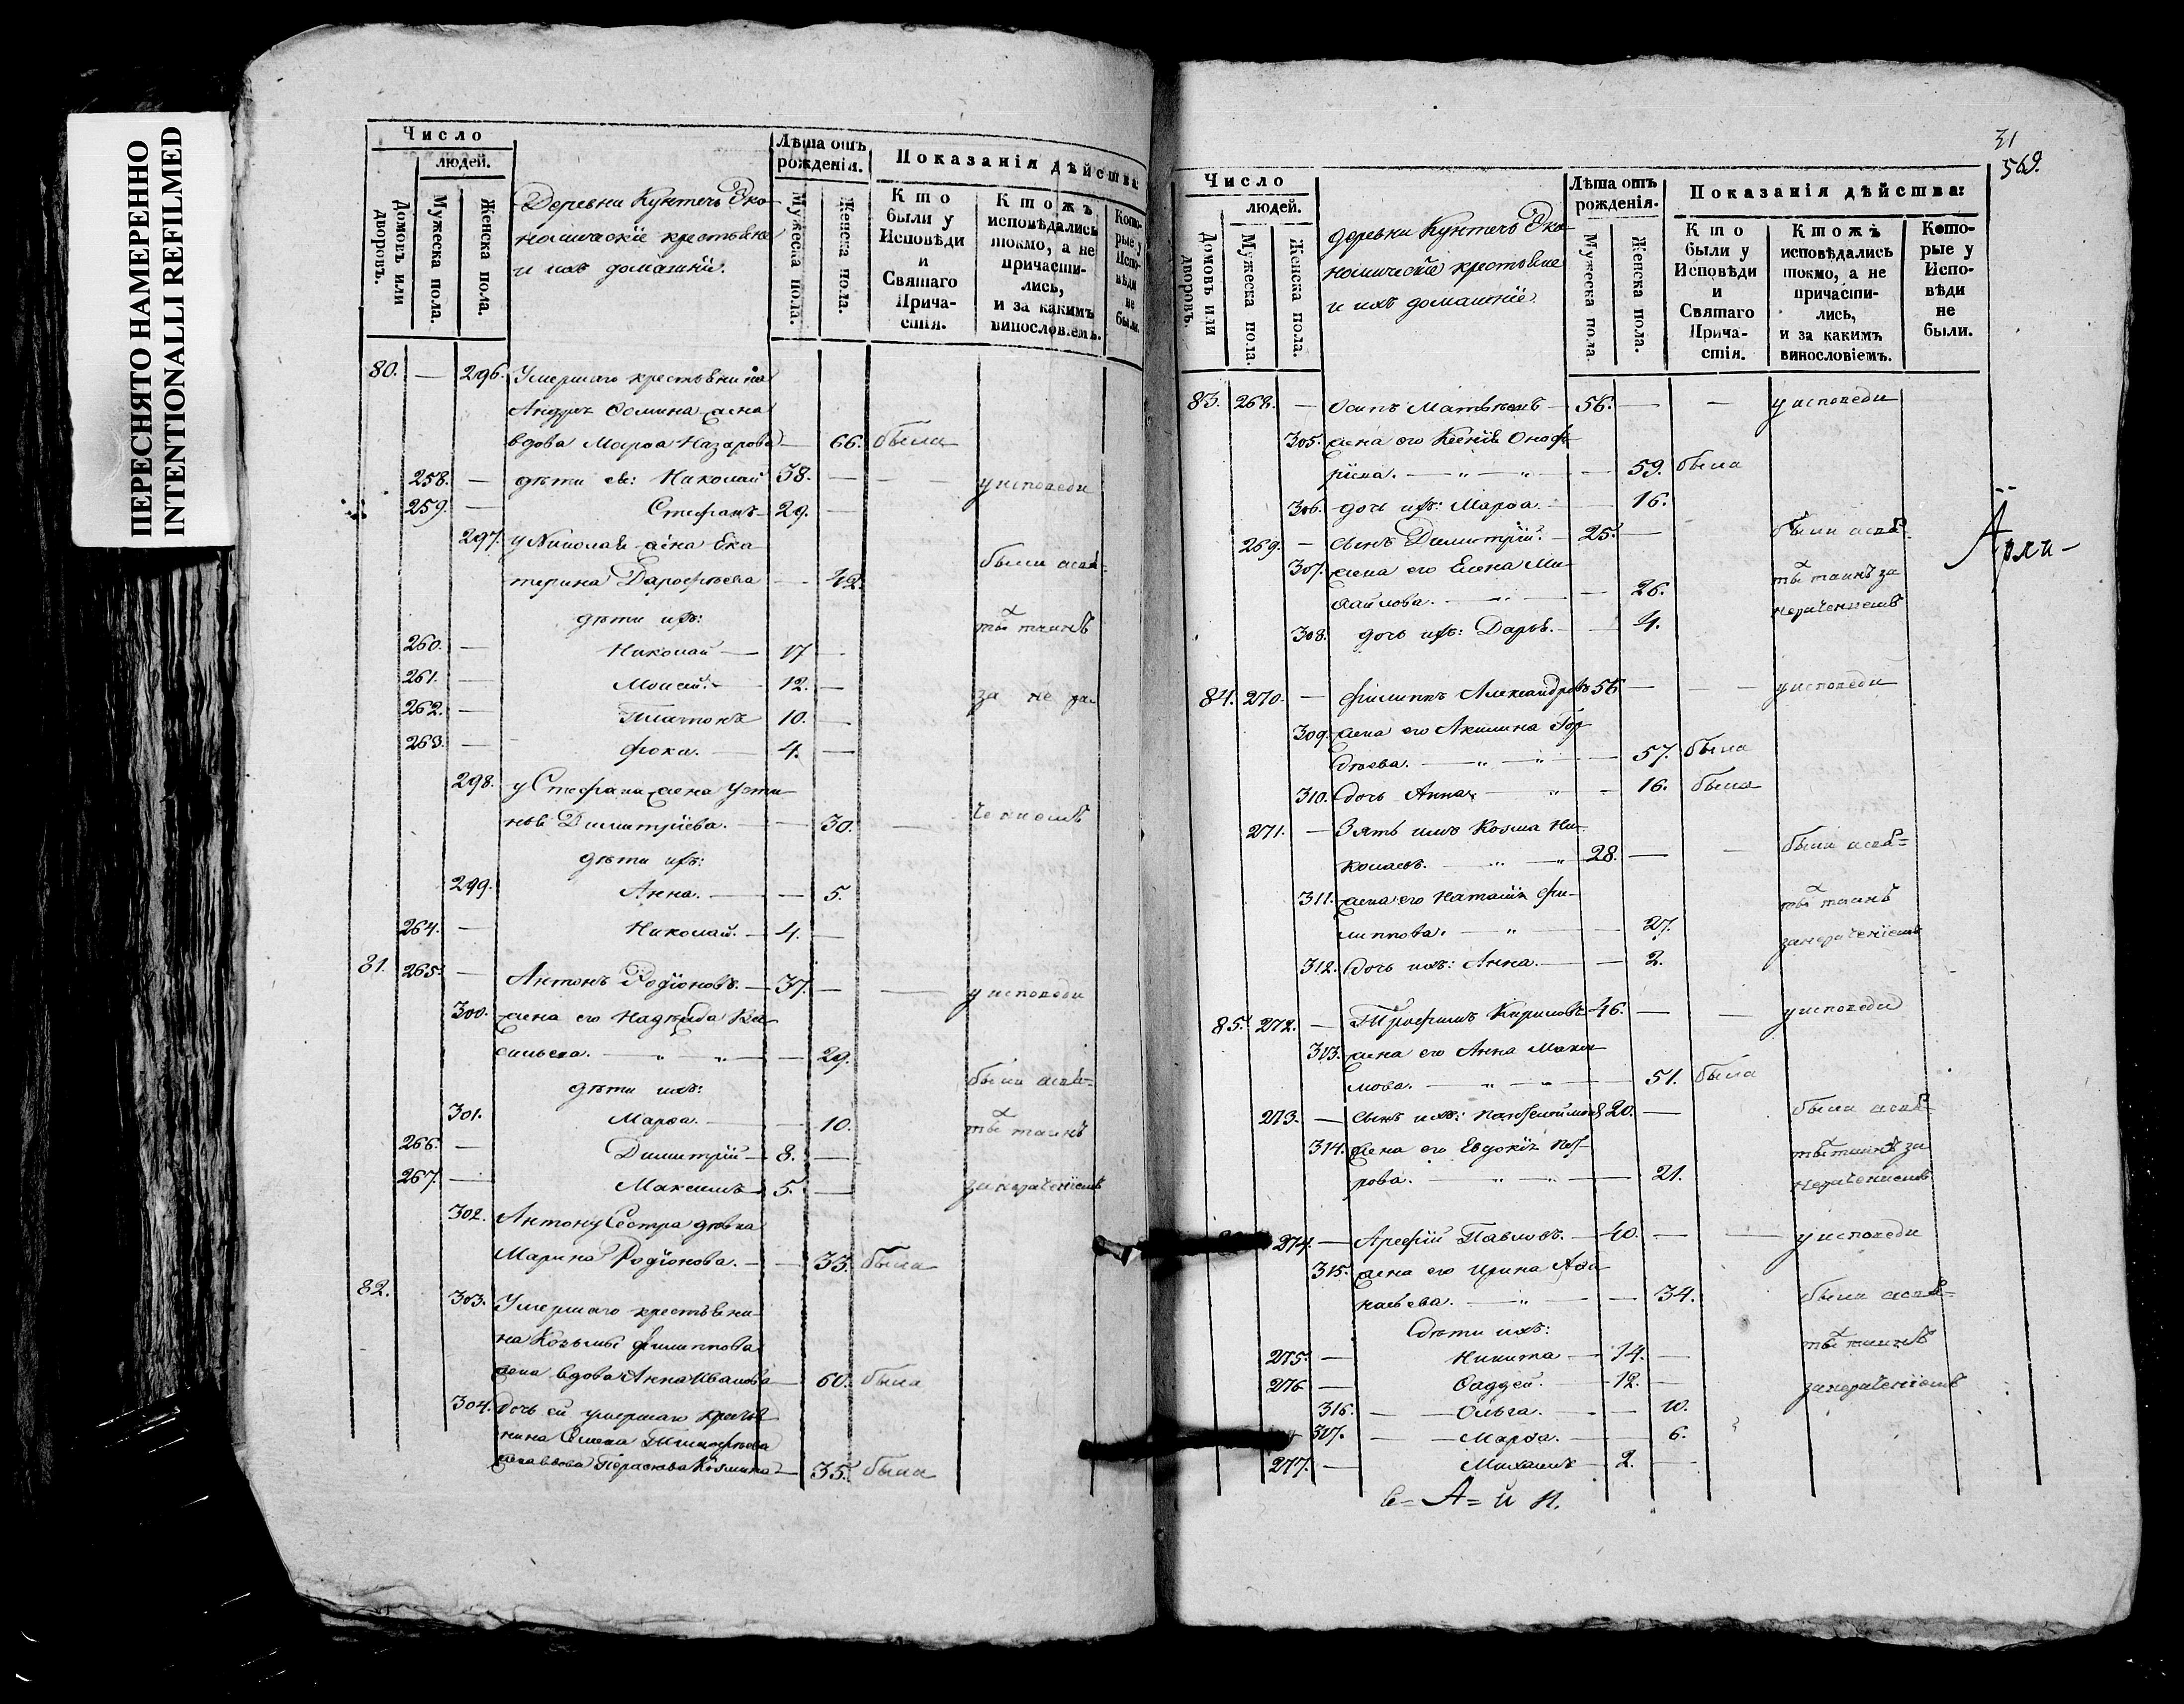 ПЕРЕСНЯТО НАМЕРЕННО
INTENTIONALLI REFILMED
Число
людей.
Домовъ или дворовъ.
Мужеска пола.
Женска пола.
Деревни Кунтечъ Эко-
номическіе крестьяне
и ихъ домашніи.
Лѣта отъ рожденія.
Мужеска пола.
Женска пола.
Показанія дѣйства:
Кто были у Исповѣди и Святаго Причастія.
Ктожъ исповѣдались токмо, а не причасти-лись, и за какимъ винословіемъ.
Кото-рые у Испо-вѣди не были.
80. — 296. Умершаго крестьянина
Андрея Фомина жена
вдова Марѳа Назарова — 66. была
258. — дѣти ея: Николай 38. — — у исповеди
259. — Стефанъ 29. —
297. у Николая жена Ека-
терина — 42. были а свя-
дѣти ихъ: тых таинъ
260. — Николай — 17 —
261. — Моисей — 12. — за не ра-
262. — Платонъ 10. —
263. — Фока. — 4. —
298. у Стефана жена Усти-
нья Димитріева. — 30. — чениемъ
дѣти ихъ:
299. Анна. — — 5.
264. — Николай. — 4. —
81. 265. — Антонъ Родіоновъ. — 37. — — у исповеди
300. жена его Надежда Ва-
сильева. — „ — „ — 29.
дѣти ихъ: были а свя-
301. Марѳа. — — 10. тых таинъ
266. — Димитрій — 8. —
267. — Максимъ 5. — за нерачениемъ
302. Антону Сестра девка
Марина Родіонова. — — 33. была
82. 303. Умершаго крестьяни-
на Козьмы Филиппова
жена вдова Анна Иванова — 60. была
304. Дочь ей умершаго крестья
нина Семена
жена вдова Парасковья Козмина — 35. была
31
569.
Число
людей.
Домовъ или дворовъ.
Мужеска пола.
Женска пола.
деревни Кунтечъ Эко-
номическіе крестьяне
и ихъ домашніе.
Лѣта отъ рожденія.
Мужеска пола.
Женска пола.
Показанія дѣйства:
Кто были у Исповѣди и Святаго Прича-стія.
Ктожъ исповѣдались токмо, а не причасти-лись, и за какимъ винословіемъ.
Кото-рые у Испо-вѣди не были.
83. 268. — Осипъ Матвѣевъ — 56. — — у исповеди
305. жена его Ксенія Оноф-
ріева. — „ — „ — 59. была
306. дочь ихъ: Марѳа. — — 16.
269. — Сынъ Димитрій. — 25. — были а свя-
307. жена его Елена Ми- тых таинъ за
хайлова. — „ — 26. нерачениемъ
308. дочь ихъ: Дарья. — — 4.
84. 270. — Филиппъ Александровъ 56. — — у исповеди
309. жена его Акилина Гор-
дѣева. — „ — „ — 57. была
310. Дочь Анна. — „ — 16. была
271. — Зять имъ Козма Ни-
колаевъ. — „ — „ 28. — — были а свя-
311. жена его Наталія Фи- тых таинъ
липпова. — „ — 27. за нерачениемъ
312. Дочь ихъ: Анна. — — 2.
85. 272. — Трофимъ Кириловъ 46. — — у исповеди
313. жена его Анна Макси-
мова. — „ — „ — 51. была
273. — Сынъ ихъ: Пантелеймонъ 20. — были а свя-
314. жена его Евдокія Пет- тых таинъ за
рова. — „ — „ — 21. нерачениемъ
274. — Арефій Павловъ. — 40. — — у исповеди
315. жена его Ирина Аѳа
насьева. — „ — 34. были а свя-
Дѣти ихъ: тых таинъ
275. — Никита — 14. —
276 — Ѳаддей. — 12. — за нерачениемъ
316. — — Ольга. — — 10.
317. — — Марѳа. — — 6.
277. — Михаилъ — 2. —